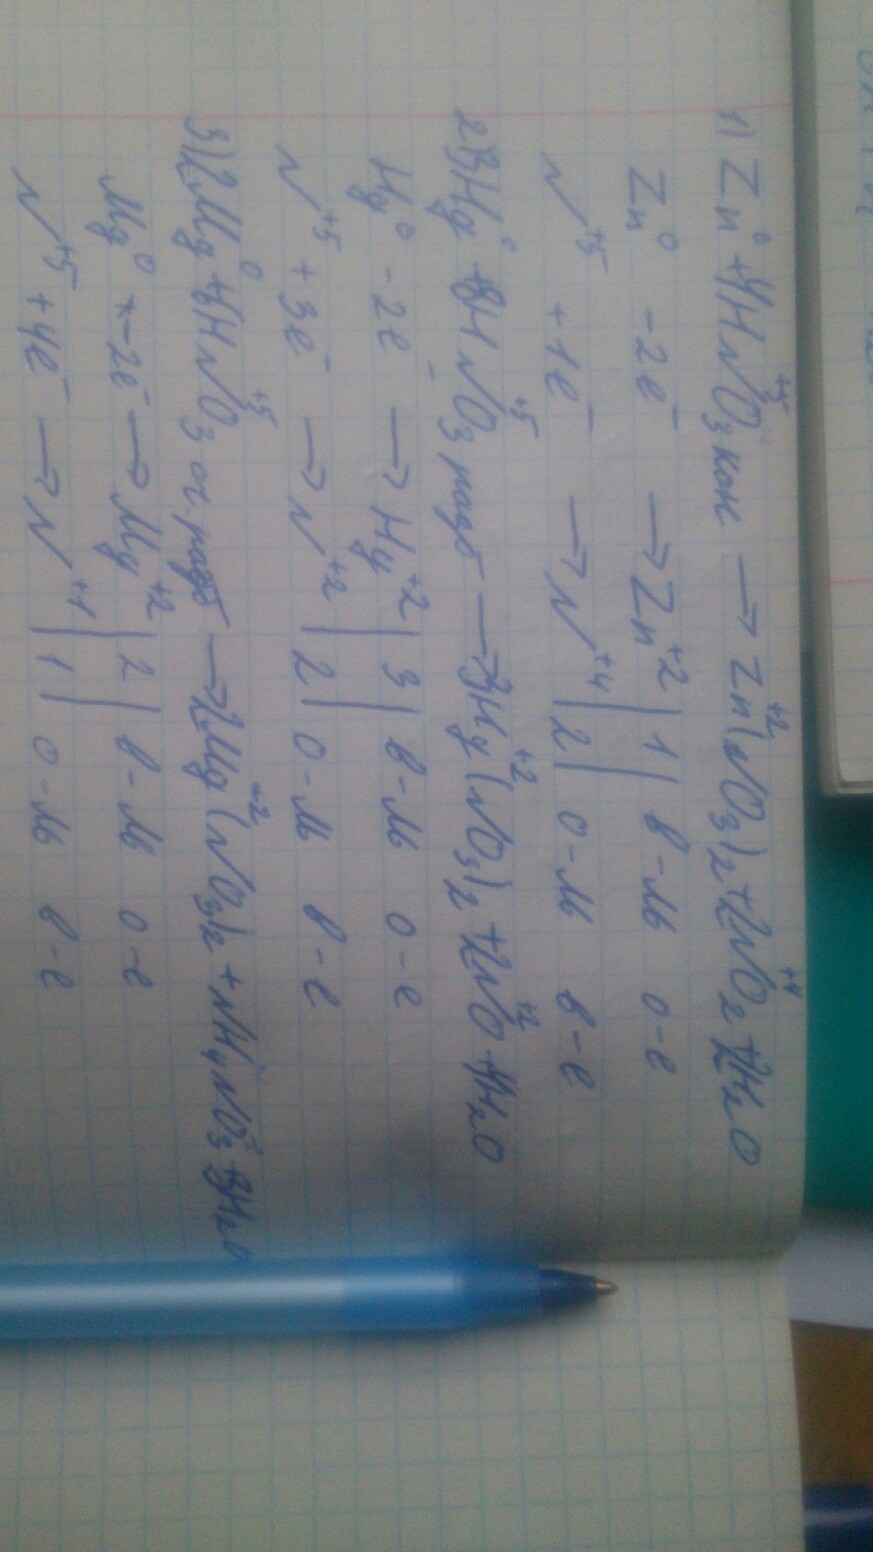 1) Zn⁰ + 4HN⁺⁵O₃ конc → Zn⁺²(NO₃)₂ + 2N⁺⁴O₂ + 2H₂O
Zn⁰ -2e⁻ → Zn⁺² | 1 | в-ль о-е
N⁺⁵ +1e⁻ → N⁺⁴ | 2 | о-ль в-е
2) 3Hg⁰ + 8HN⁺⁵O₃ разб → 3Hg⁺²(NO₃)₂ + 2N⁺²O + 4H₂O
Hg⁰ -2e⁻ → Hg⁺² | 3 | в-ль о-е
N⁺⁵ +3e⁻ → N⁺² | 2 | о-ль в-е
3) 2Mg⁰ + HN⁺⁵O₃ оч. разб → 2Mg⁺²(NO₃)₂ + NH₄NO₃ + H₂O
Mg⁰ -2e⁻ → Mg⁺² | 2 | в-ль о-е
N⁺⁵ +4e⁻ → N⁺¹ | 1 | о-ль в-е